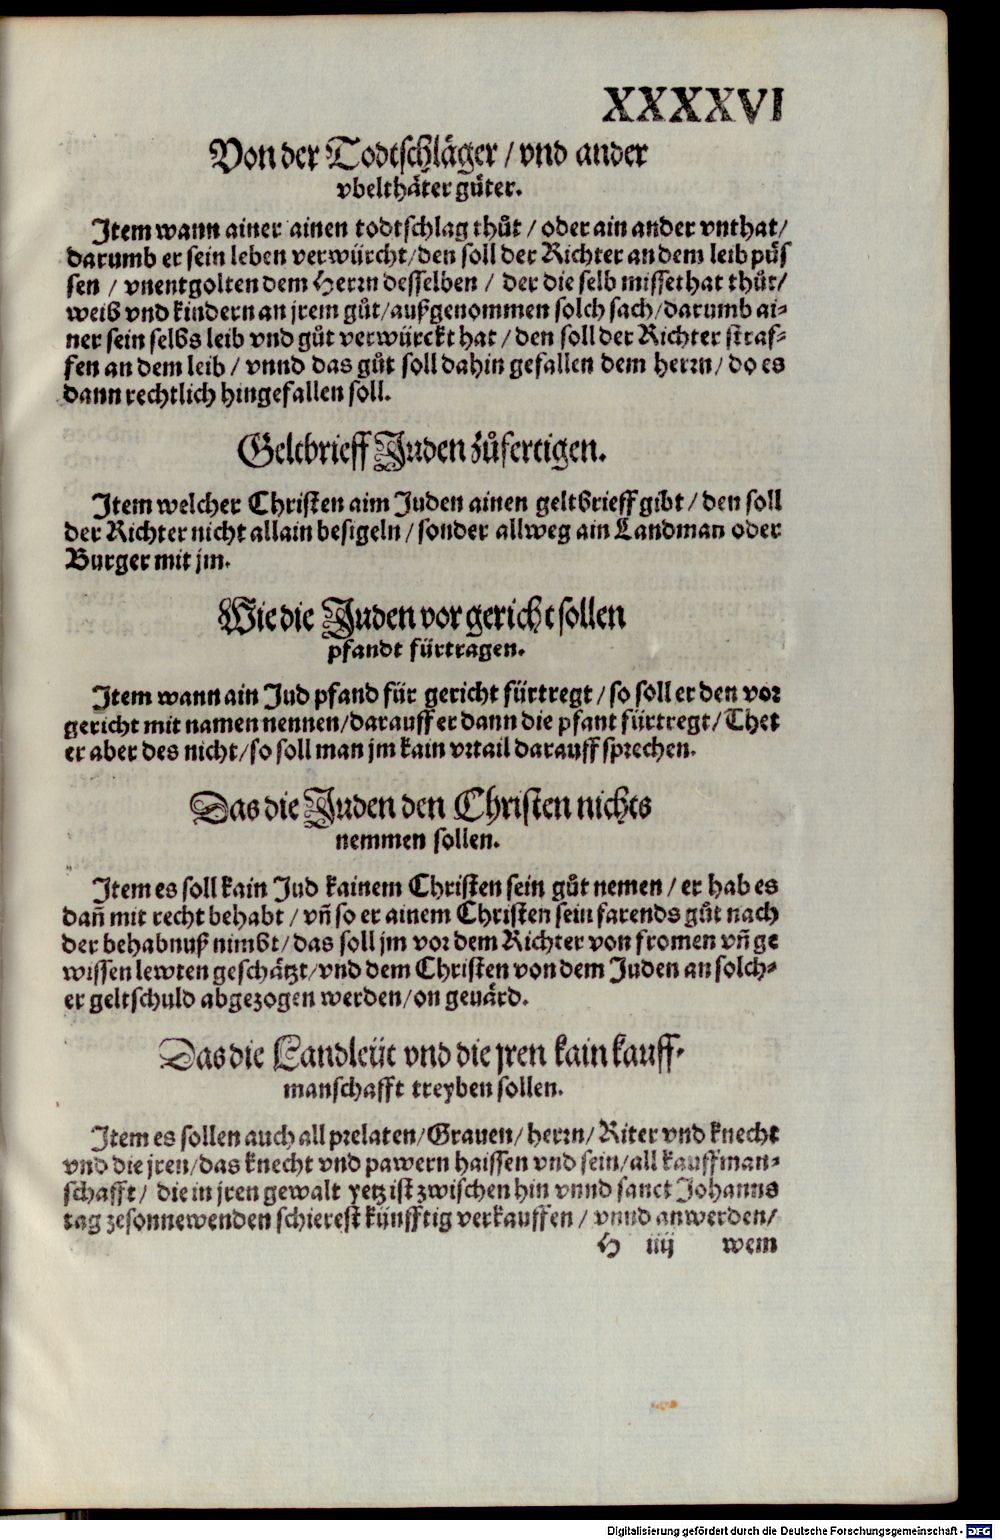 XXXXVI
Von der Todtschläger / vnd ander
vbelthäter güter.
Item wann ainer ainen todtschlag thůt / oder ain ander vnthat /
darumb er sein leben verwürcht / den soll der Richter an dem leib půs
sen / vnentgolten dem Herrn desselben / der die selb missethat thůt /
weib vnd kindern an jrem gůt / außgenommen solch sach / darumb ai-
ner sein selbs leib vnd gůt verwürckt hat / den soll der Richter straf-
fen an dem leib / vnnd das gůt soll dahin gefallen dem herrn / do es
dann rechtlich hingefallen soll.
Geltbrieff Juden zůfertigen.
Item welcher Christen aim Juden ainen geltbrieff gibt / den soll
der Richter nicht allain besigeln / sonder allweg ain Landman oder
Burger mit jm.
Wie die Juden vor gericht sollen
pfandt fürtragen.
Item wann ain Jud pfand für gericht fürtregt / so soll er den vor
gericht mit namen nennen / darauff er dann die pfant fürtregt / Thet
er aber des nicht / so soll man jm kain vrtail darauff sprechen.
Das die Juden den Christen nichts
nemmen sollen.
Item es soll kain Jud kainem Christen sein gůt nemen / er hab es
dañ mit recht behabt / vñ so er ainem Christen sein farends gůt nach
der behabnuß nimbt / das soll jm vor dem Richter von fromen vñ ge
wissen lewten geschätzt / vnd dem Christen von dem Juden an solch-
er geltschuld abgezogen werden / on geuärd.
Das die Landleüt vnd die jren kain kauff-
manschafft treyben sollen.
Item es sollen auch all prelaten / Grauen / herrn / Riter vnd knecht
vnd die jren / das knecht vnd pawern haissen vnd sein / all kauffman-
schafft / die in jren gewalt yetz ist zwischen hin vnnd sanct Johanns
tag zesonnewenden schierest künfftig verkauffen / vnnd anwerden /
H iiij wem
Digitalisierung gefördert durch die Deutsche Forschungsgemeinschaft - DFG